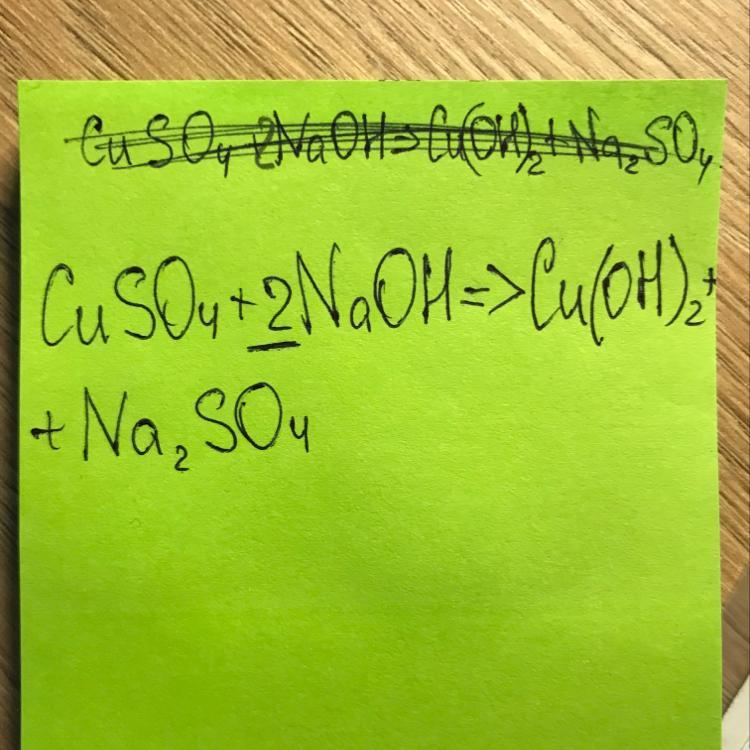 CuSO₄ 2NaOH=>Cu(OH)₂+Na₂SO₄
CuSO₄+2NaOH=>Cu(OH)₂+
+Na₂SO₄